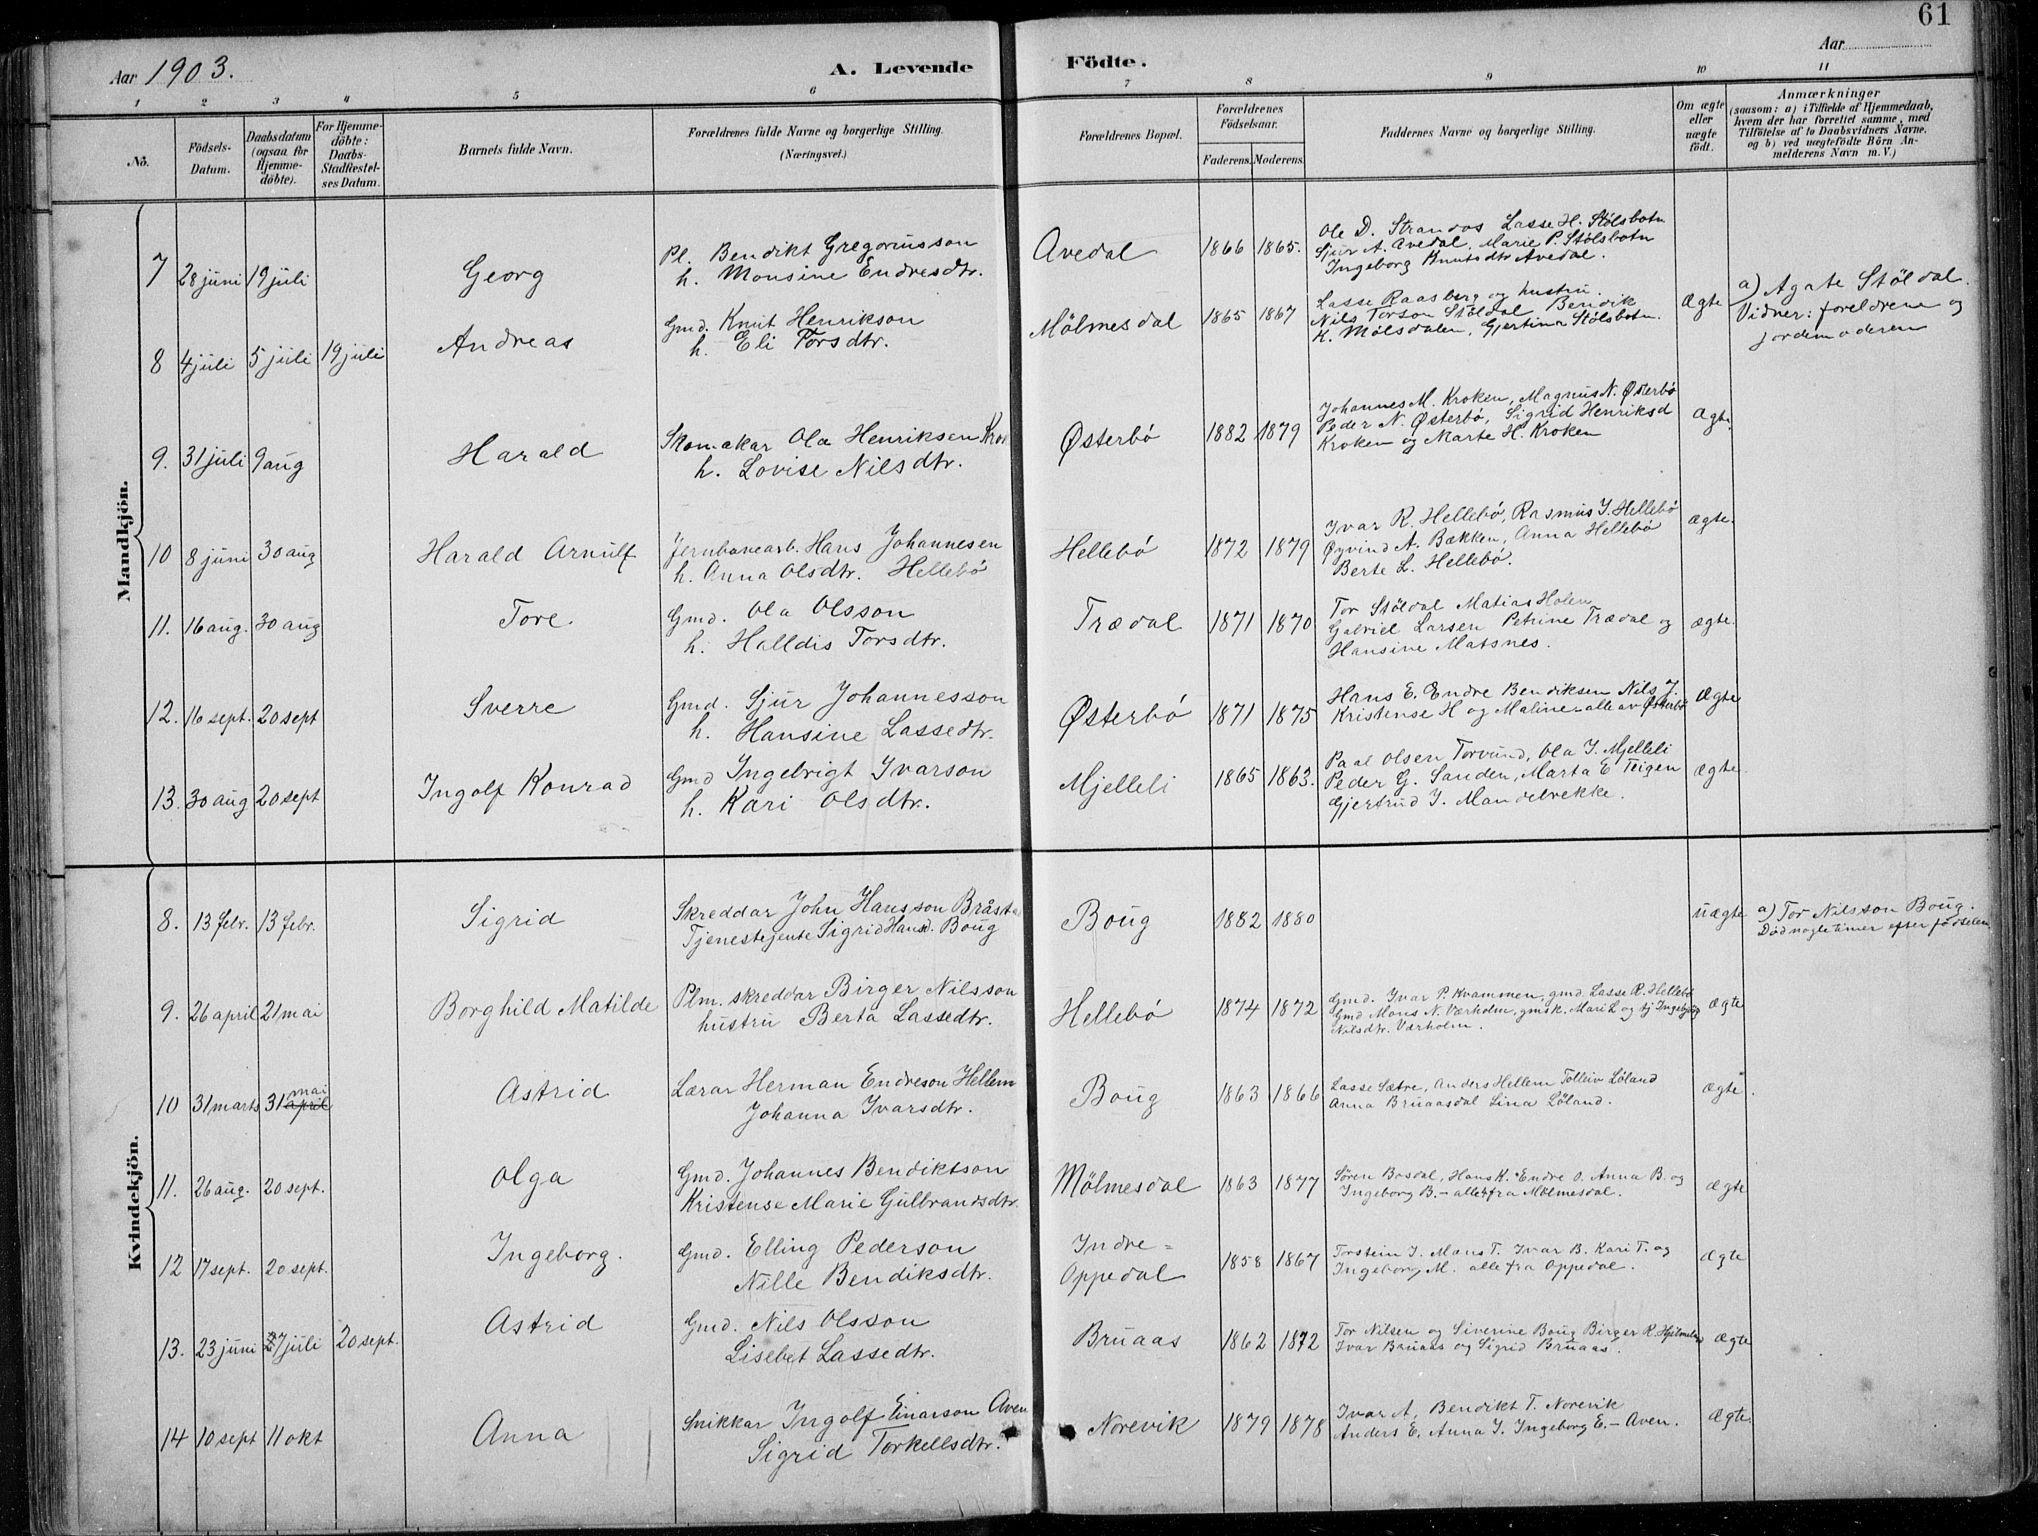 61
Aar 1903.
A. Levende
Födte.
Aar
1 2 3 4 5 6 7 8 9 10 11
No.
Födsels-
Datum.
Daabsdatum
(ogsaa for
Hjemme-
döbte).
For Hjemme-
döbte:
Daabs-
Stadfæstel-
ses Datum.
Barnets fulde Navn.
Forældrenes fulde Navne og borgerlige Stilling.
(Næringsvei.)
Forældrenes Bopæl.
Forældrenes
Födselsaar.
Faderens. Moderens.
Faddernes Navne og borgerlige Stilling.
Om ægte
eller
uægte
födt.
Anmærkninger
(saasom: a) i Tilfælde af Hjemmedaab,
hvem der har forrettet samme, med
Tilföielse af to Daabsvidners Navne.
og b) ved uægtefödte Börn An-
melderens Navn m. V.)
Mandkjön.
7 28 juni 19 juli Georg
Pl. Bendikt Gregoriusson
h. Monsine Endresdtr.
Avedal 1866 1865.
Ole D. Strandos Lasse H. Stølsbotn
Sjur A. Avedal, Marie P. Stølsbotn
Ingeborg Knutsdtr Avedal.
8 4 juli 5 juli 19 juli Andreas
Gmd. Knut Henrikson
h. Eli Torsdtr.
Mølmesdal 1865 1867
Lasse Raasberg og hustru.
Nils Torson Støldal Bendik
K. Mølsdalen, Gjertina Stølsbotn.
Ægte
a) Agate Støldal.
Vidner: foreldrene og
jordemoderen
9. 31 juli 9 aug Harald
Skomakar Ola Henriksen Krok
h. Lovise Nilsdtr.
Østerbø 1882 1879
Johannes M. Kroken, Magnus N. Østerbø
Peder N. Østerbø, Sigrid Henriksd
Kroken og Marte H. Kroken
Ægte.
10 8 juni 30 aug Harald Arnulf
Jernbanearb. Hans Johannesen
h. Anna Olsdtr. Hellebø
Hellebø 1872 1879
Ivar R. Hellebø, Rasmus I. Hellebø
Øyvind A. Bækken, Anna Hellebø
Berte L. Hellebø.
ægte.
11. 16 aug. 30 aug Tore.
Gmd. Ola Olsson
h. Halldis Torsdtr.
Trædal 1871 1870
Tor Støldal Matias Holen
Gabriel Larsen Petrine Trædal og
Hansine Matsnes.
ægte.
12. 16 sept. 20 sept Sverre
Gmd. Sjur Johannesson
h. Hansine Lassedtr.
Østerbø 1871 1875
Hans E. Endre Bendiksen Nils J.
Kristense H og Maline - alle av Østerbø
Ægte
13. 30 aug 20 sept Ingolf Konrad
Gmd Ingebrigt Ivarson
h. Kari Olsdtr.
Mjelleli 1865 1863.
Paal Olsen Torvund, Ola I. Mjelleli
Peder G. Sanden, Marta E Teigen
Gjertrud I. Mandelrekke.
ægte
Kvindekjön.
8. 13 febr. 13 febr. Sigrid
Skreddar John Hansson Bråsta
Tjenestejente Sigrid Hansd. Boug
Boug 1882 1880
uægte
a) Tor Nilsson Boug.
Død nogle timer efter fødselen
9. 26 april 21 mai Borghild Matilde
Plm. skreddar Birger Nilsson
hustru Berta Lassedtr.
Hellebø 1874 1872
Gmd. Ivar P. Kvammen, gmd. Lasse R. Hellebø
Gmd Mons N. Værholm, gmsk. Mari L og tj Ingeborg
Nilsdtr. Værholm.
ægte
10 31 marts 31 april mai Astrid
Lærar Herman Endreson Hellem
Johanna Ivarsdtr.
Boug 1863 1866
Lasse Sætre, Anders Hellem Tolleiv Løland
Anna Bruaasdal Lina Løland.
ægte.
11. 26 aug. 20 sept. Olga
Gmd. Johannes Bendiktson
Kristense Marie Gulbrandsdtr.
Mølmesdal 1863 1877
Søren Bosdal, Hans K. Endre O. Anna B. og
Ingeborg B. - alle fra Mølmesdal.
ægte
12 17 sept. 20 sept. Ingeborg.
Gmd. Elling Pederson
Nille Bendiksdtr.
Indre=
Oppedal 1858 1867
Torstein I. Mons T. Ivar B. Kari T. og
Ingeborg M. alle fra Oppedal.
ægte
13. 23 juni 27 juli 20 sept. Astrid
Gmd. Nils Olsson
Lisebet Lassedtr.
Bruaas 1862 1872
Tor Nilsen og Siverine Boug Birger R.
Ivar Bruaas og Sigrid Bruaas.
ægte
14 10 sept 11 okt Anna
Snikkar Ingolf Einarson Aven
Sigrid Torkellsdtr.
Norevik 1879 1878
Ivar A, Bendikt T. Norevik
Anders E. Anna I. Ingeborg E. - Aven.
Ægte